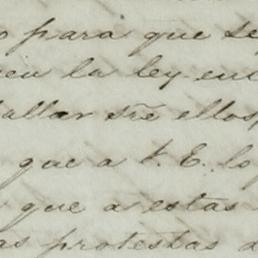 o para que se
en la ley en
allar sr̃e ellos,
que a V. E. lo
que a estas
as protestas d